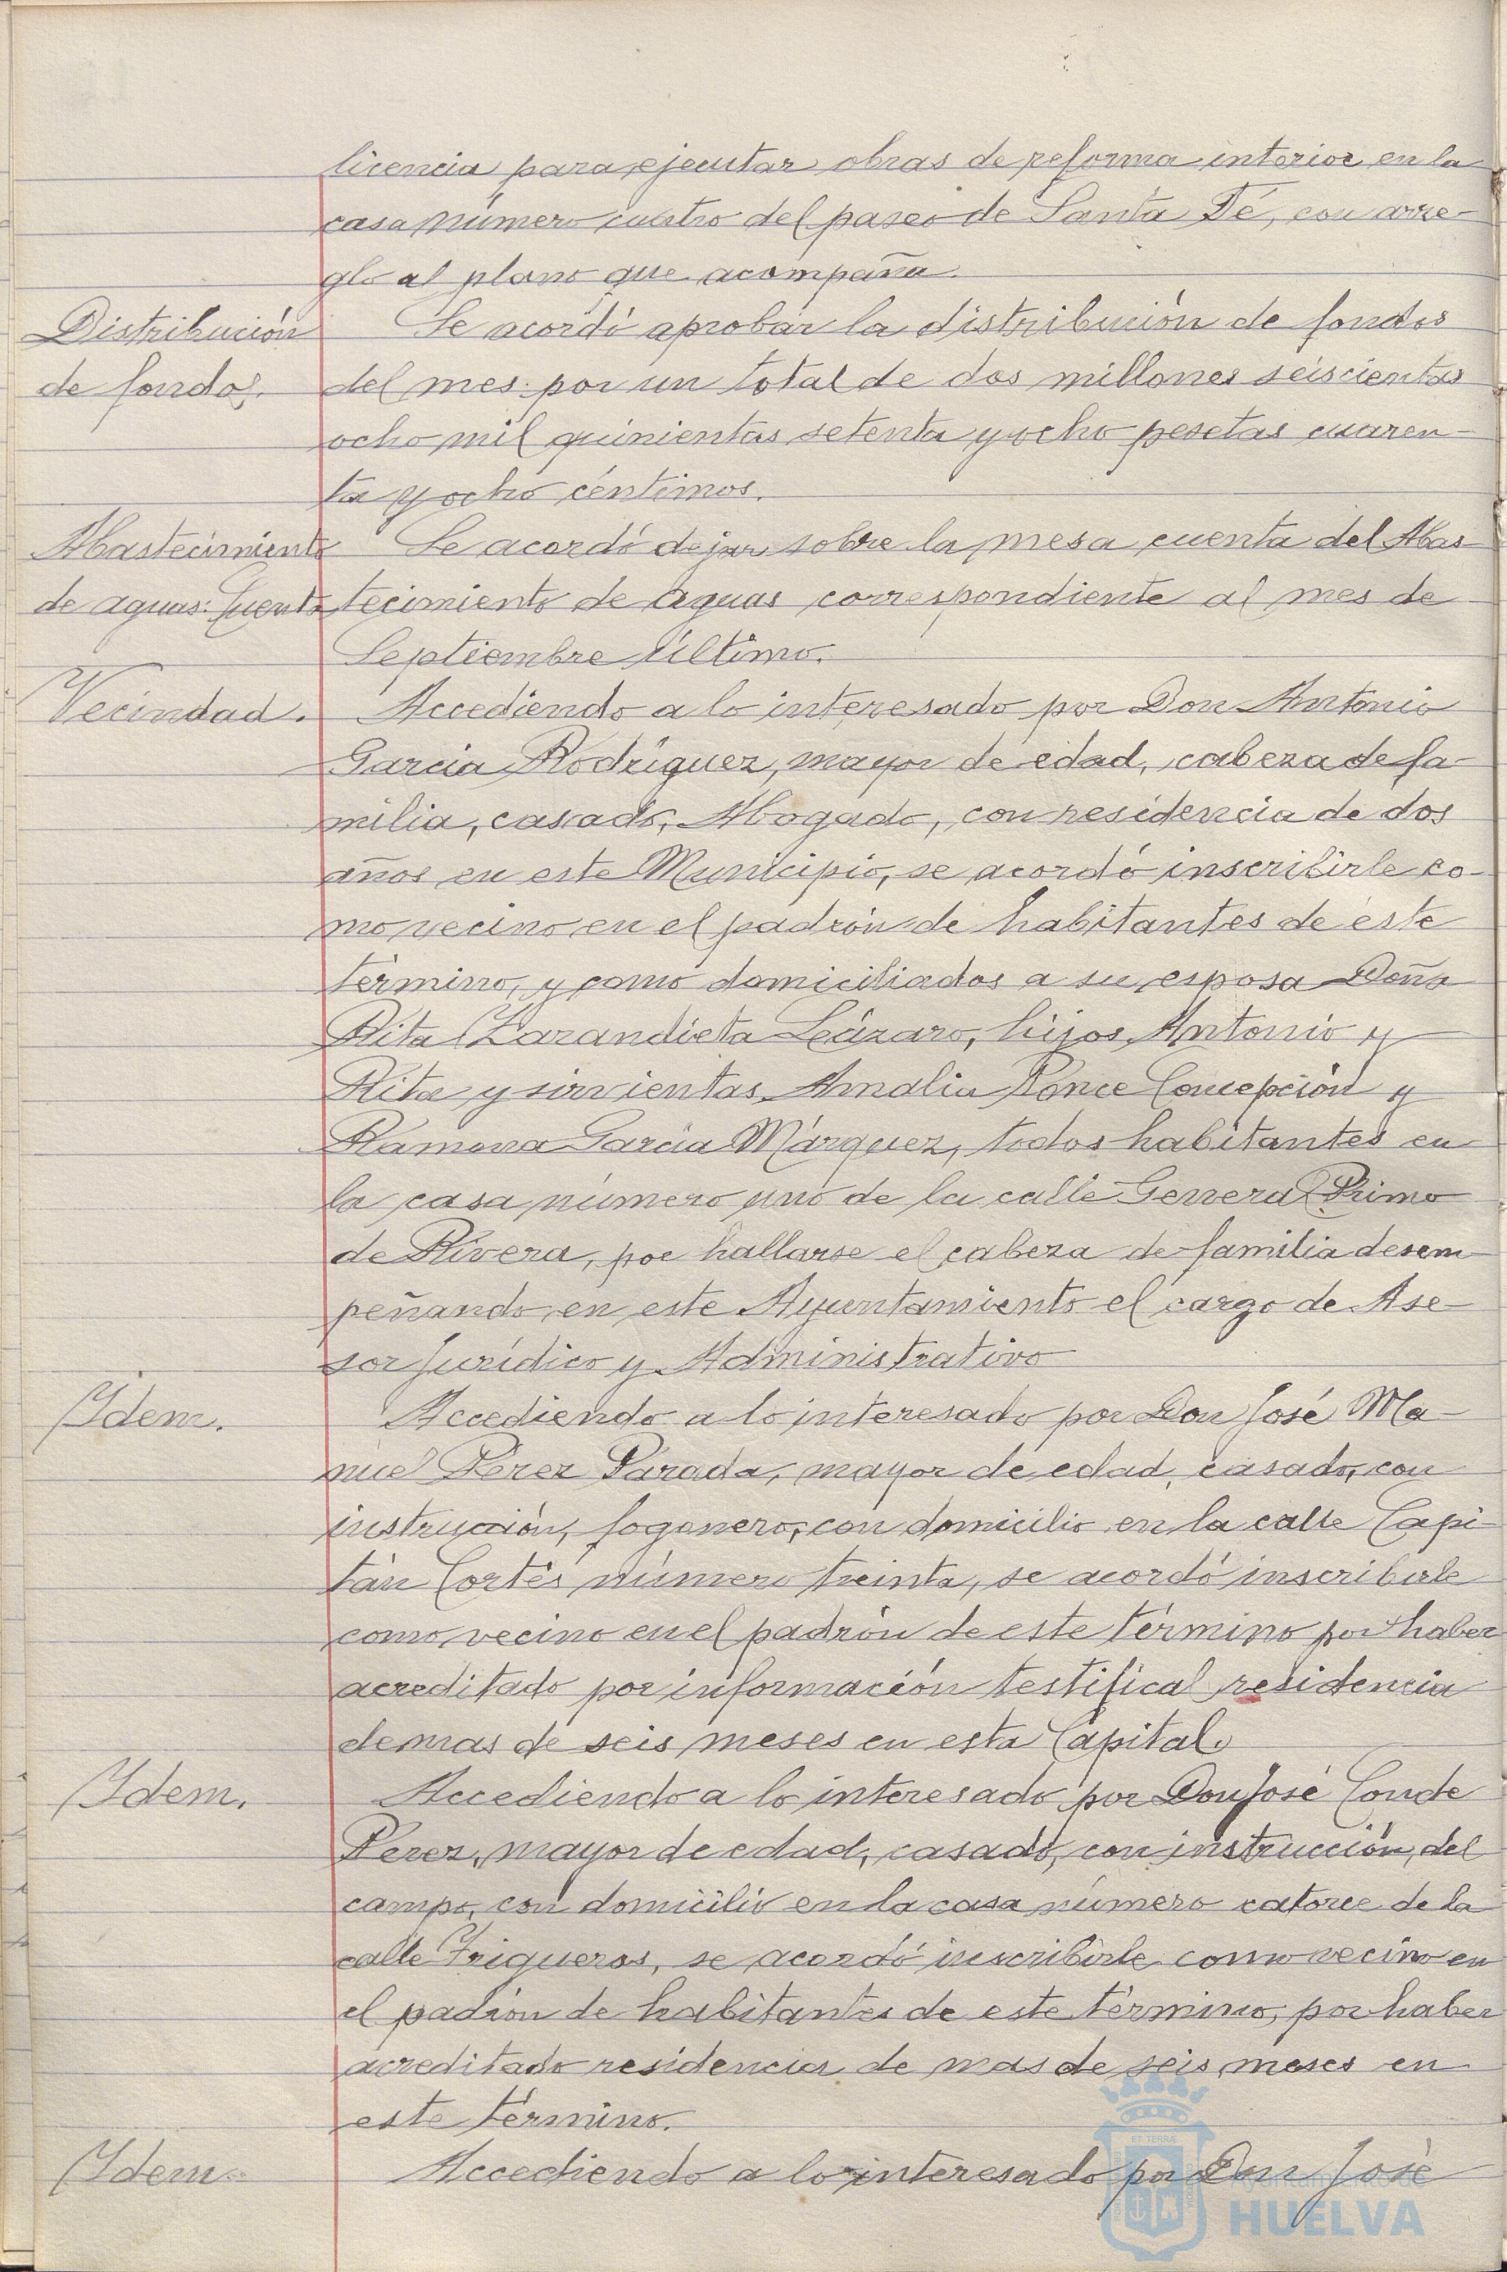 licencia para ejecutar obras de reforma interior en la
casa número cuatro del paseo de Santa Fé, con arre-
glo al plano que acompaña.
Distribución
de fondos.
Se acordó aprobar la distribución de fondos
del mes por un total de dos millones seiscientas
ocho mil quinientas setenta y ocho pesetas cuaren-
ta y ocho céntimos.
Abastecimiento
de aguas: Cuenta
Se acordó dejar sobre la mesa cuenta del Abas-
tecimiento de aguas correspondiente al mes de
Septiembre último.
Vecindad.
Accediendo a lo interesado por Don Antonio
Garcia Rodríguez, mayor de edad, cabeza de fa-
milia, casado, Abogado, con residencia de dos
años en este Municipio, se acordó inscribirle co-
mo vecino en el padrón de habitantes de este
término, y como domiciliados a su esposa Doña
Rita Zarandieta Lázaro, hijos Antonio y
Rita y sirvientas Amalia Ponce Concepción y
Ramona García Márquez, todos habitantes en
la casa número uno de la calle General Primo
de Rivera, por hallarse el cabeza de familia desem-
peñando en este Ayuntamiento el cargo de Ase-
sor Jurídico y Administrativo
Idem.
Accediendo a lo interesado por Don José Ma-
nuel Pérez Parada, mayor de edad, casado, con
instrucción, fogonero, con domicilio en la calle Capi-
tán Cortés número treinta, se acordó inscribirle
como vecino en el padrón de este término por haber
acreditado por información testifical residencia
de mas de seis meses en esta Capital.
Idem.
Accediendo a lo interesado por Don José Conde
Perez, mayor de edad, casado, con instrucción, del
campo, con domicilio en la casa número catorce de la
calle Trigueros, se acordó inscribirle como vecino en
el padrón de habitantes de este término, por haber
acreditado residencia de mas de seis meses en
este término.
Idem.
Accediendo a lo interesado por Don José
Ayuntamiento de
HUELVA